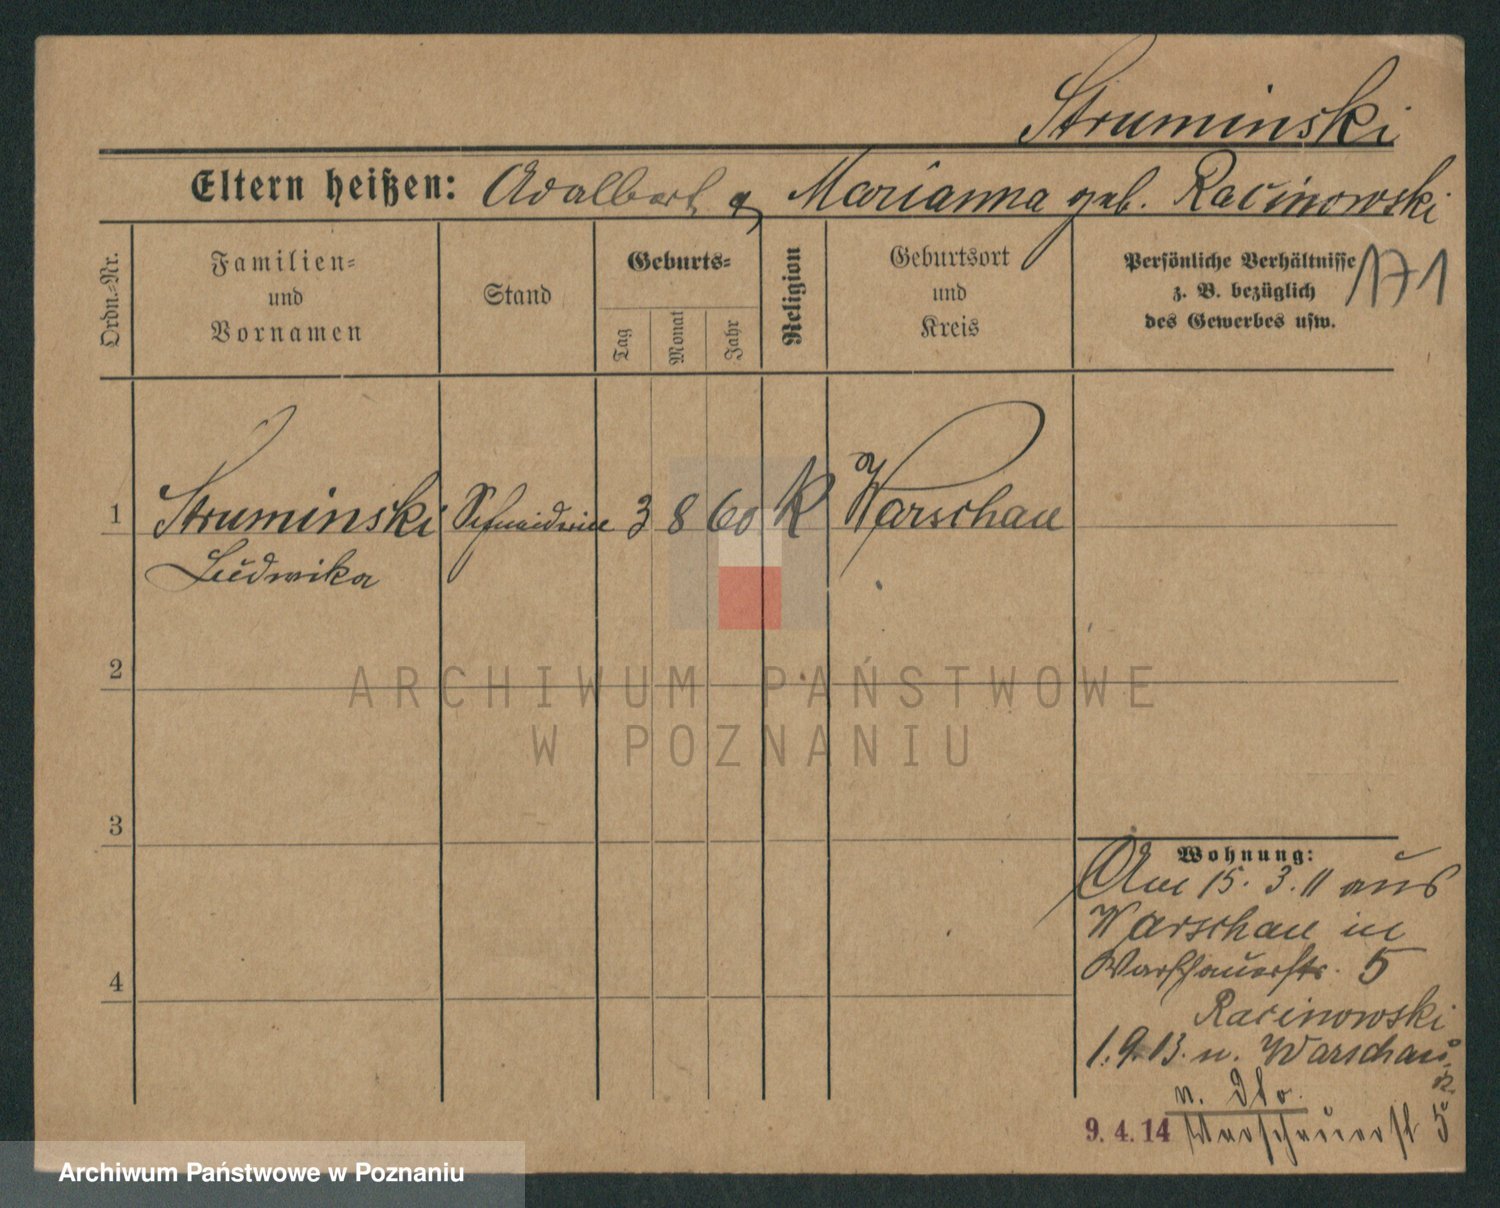 Struminski
Eltern heißen: Adalbert u Marianna geb. Racinowski
Ordn.-Nr.
Familien=
und
Vornamen
Stand
Geburts=
Tag
Monat
Jahr
Religion
Geburtsort
und
Kreis
Persönliche Verhältnisse
z. B. bezüglich
des Gewerbes usw.
171
1 Struminski Schneiderin 3 8 60 K Warschau
Ludwika
2
ARCHIWUM PAŃSTWOWE
W POZNANIU
3
4
Wohnung:
Am 15. 3. 11 aus
Warschau in
Warschauerstr. 5
Racinowski
1. 9. 13. n. Warschau
v. dto
9. 4. 14 Warschauerst 5
Archiwum Państwowe w Poznaniu